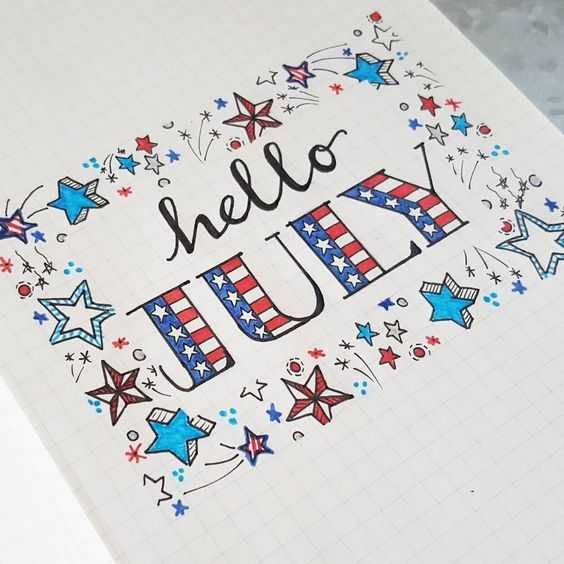 hello
JULY